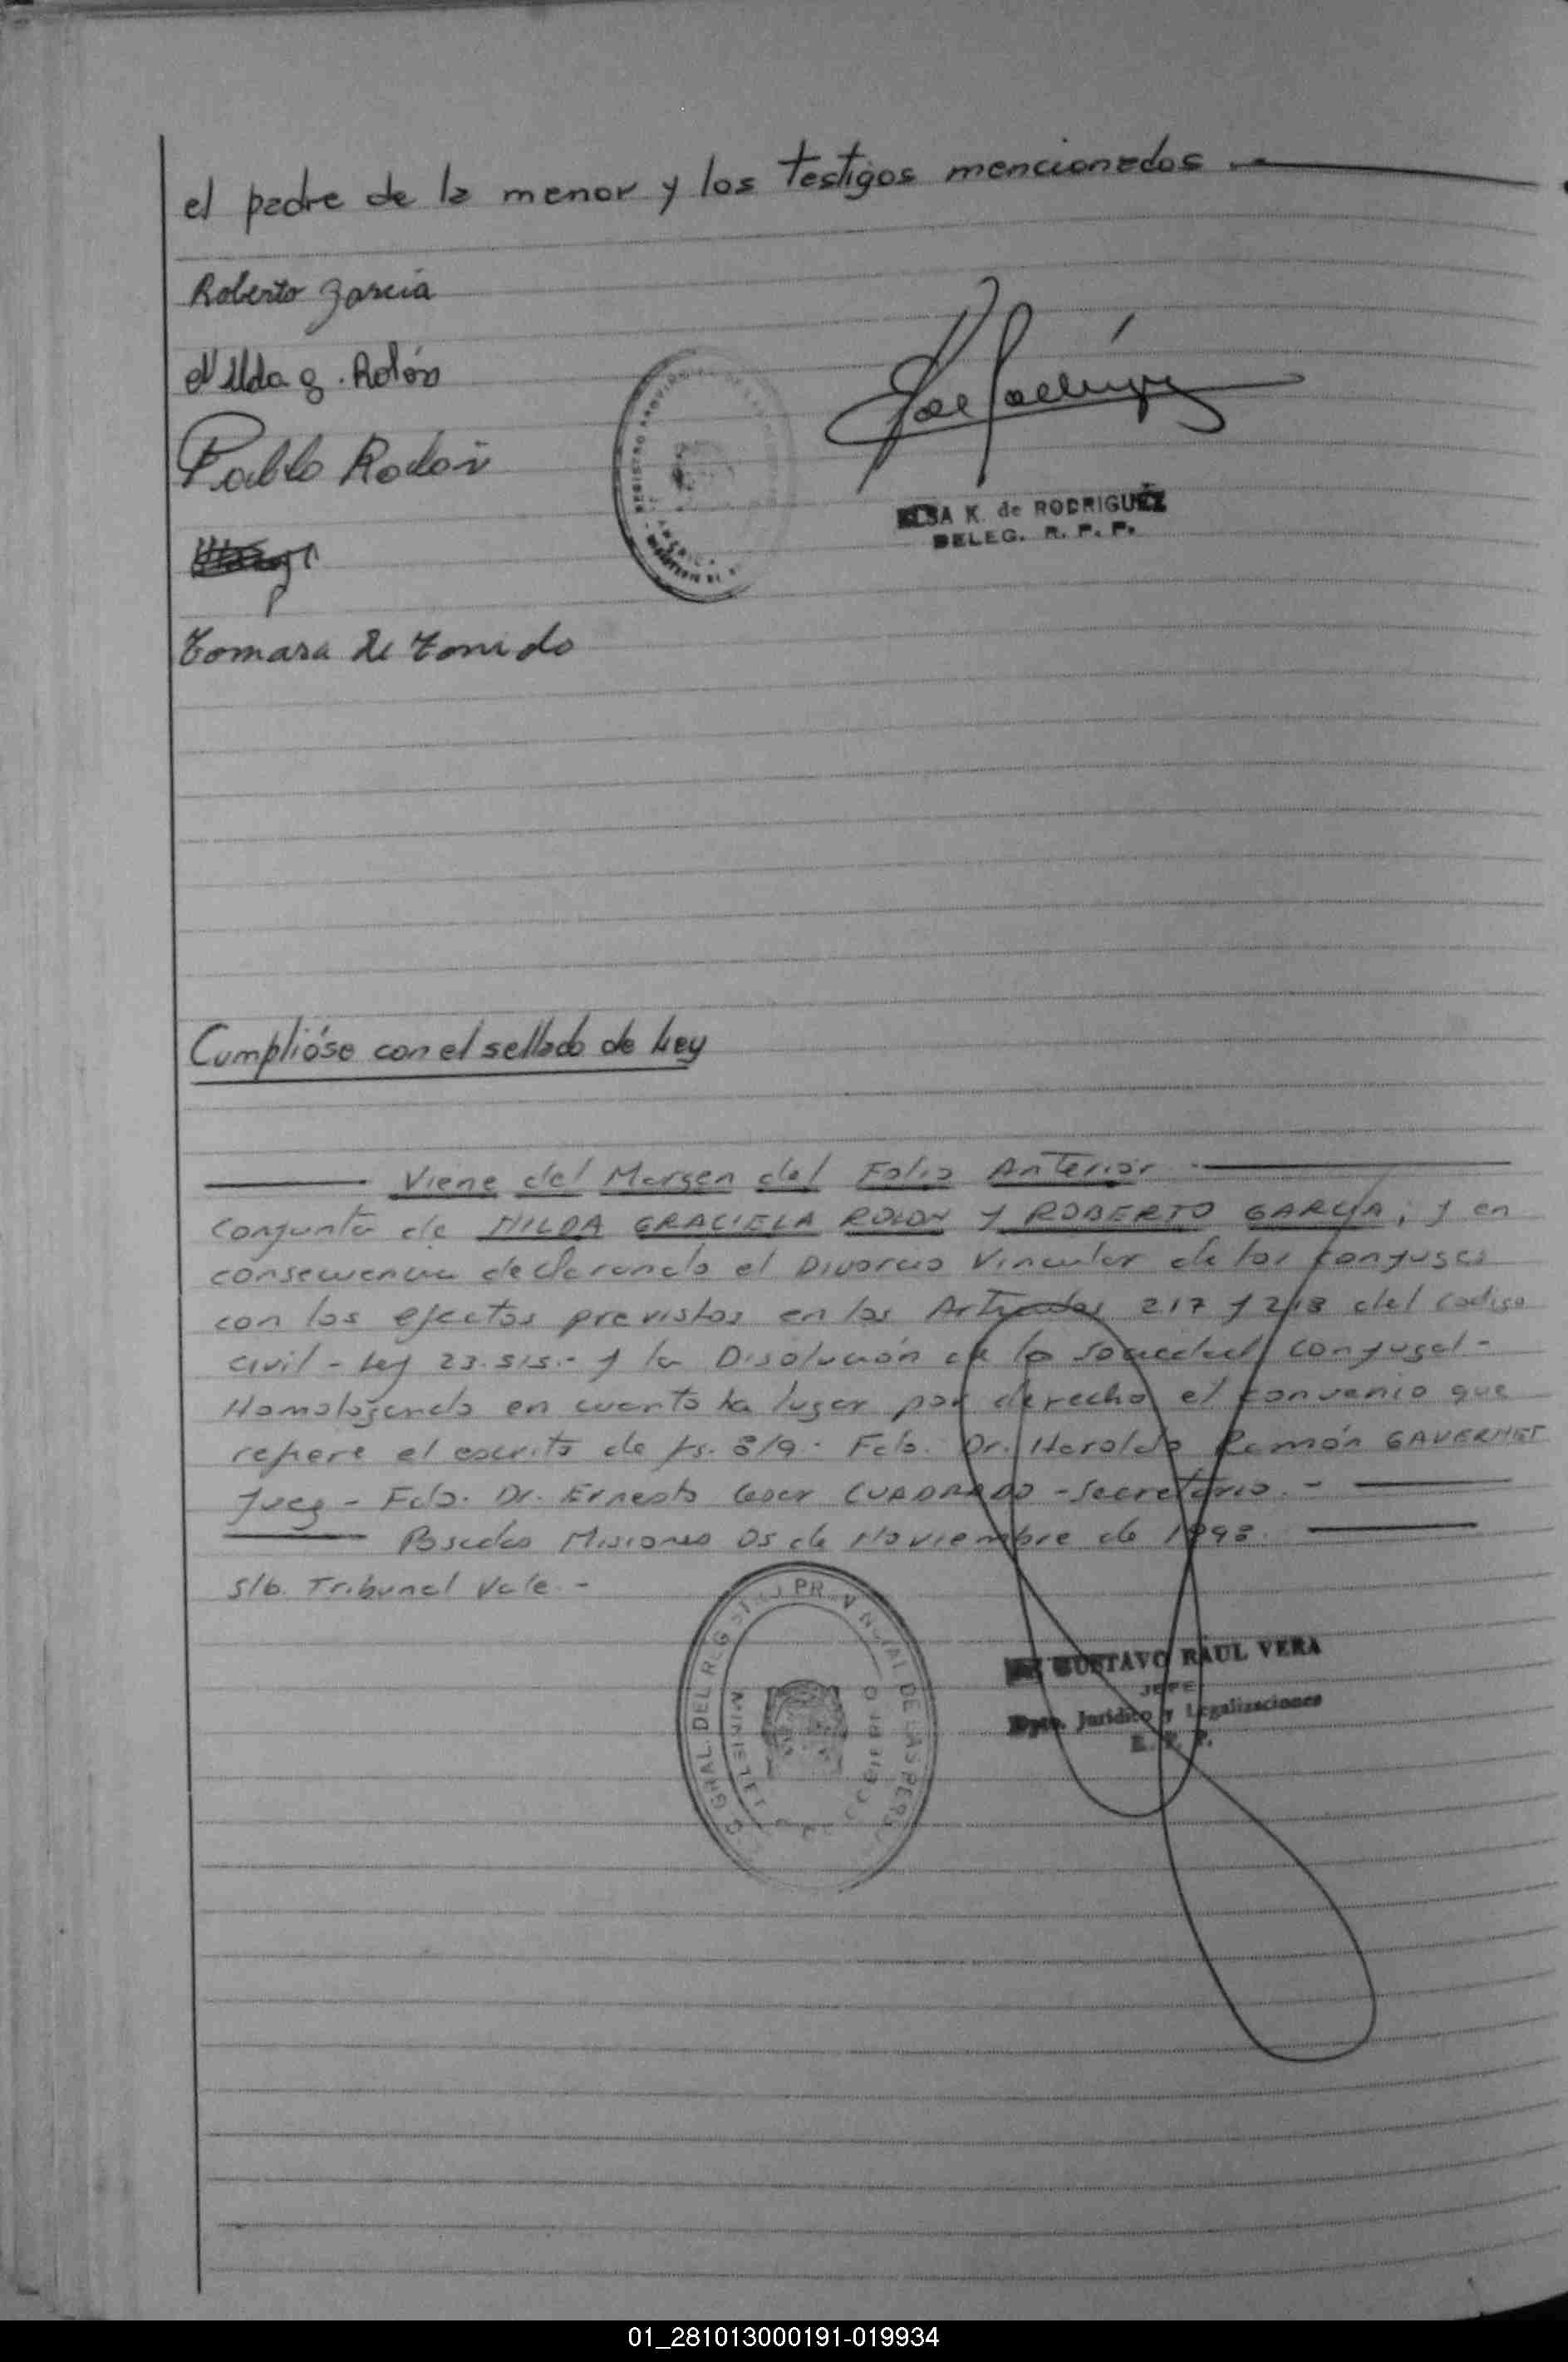 el padre de la menor y los testigos mencionados
Roberto Garcia
Nilda g. Rolón
Pablo Rolon
Tomasa de
ELSA K. de RODRIGUEZ
DELEG. R. P. P.
Cumplióse con el sellado de Ley
Viene del Margen del Folio Anterior
conjunta de NILDA GRACIELA ROLON Y ROBERTO GARCIA; y en
consecuencia declarando el Divorcio Vincular de los conyuges
con los efectos previstos en los Articulos 217 y 218 del Codigo
Civil - Ley 23.515.- y la Disolución de la Sociedad conyugal -
Homologando en cuanto ha lugar por derecho el convenio que
refiere el escrito de fs. 8/9. Fdo. Dr. Haroldo Ramón GAVERNET
Juez - Fdo. Dr. Ernesto Cesar CUADRADO - Secretario. -
Posadas Misiones 05 de Noviembre de 1998.
S/b. Tribunal Vale. -
GRAL. DEL REGISTRO PROVINCIAL DE LAS PERS
MINIST DE GOBIERNO
GUSTAVO RAUL VERA
JEFE
Dpto. Jurídico y Legalizaciones
R. P. P.
01_281013000191-019934